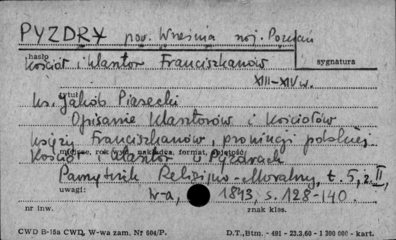 PYZDRY pow. Września woj. Poznań
hasło
Kościół i klasztor Franciszkanów
sygnatura
XIII-XIV w.
tytuł
ks. Jakób Piasecki
Opisanie klasztorów i kościołów
księży Franciszkanów, prowincji polskiej.
Kościół i klasztor w Pyzdrach
miejsce, rok wyd., nakładca, format, objętość
Pamiętnik Religijno-Moralny, t. 5, z. II,
uwagi:
W-a, 1843, s. 128-140.
nr inw.
znak klas.
CWD B-15a CWD, W-wa zam. Nr 604/P.
D.T., Btm. - 491 - 23.3.60 - 1 200 000 - kart.